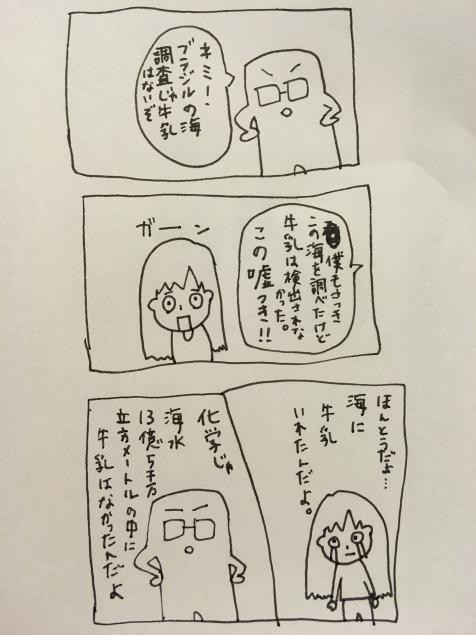 キミー・
ブラジルの海
調査じゃ牛乳
はないぞ
僕もさっき
この海を調べたけど
牛乳は検出されな
かった。
この嘘
つき!!
ガーン
ほんとうだよ…
海に
牛乳
いれたんだよ。
化学じゃ
海水
13億5千万
立方メートルの中に
牛乳はなかったんだよ